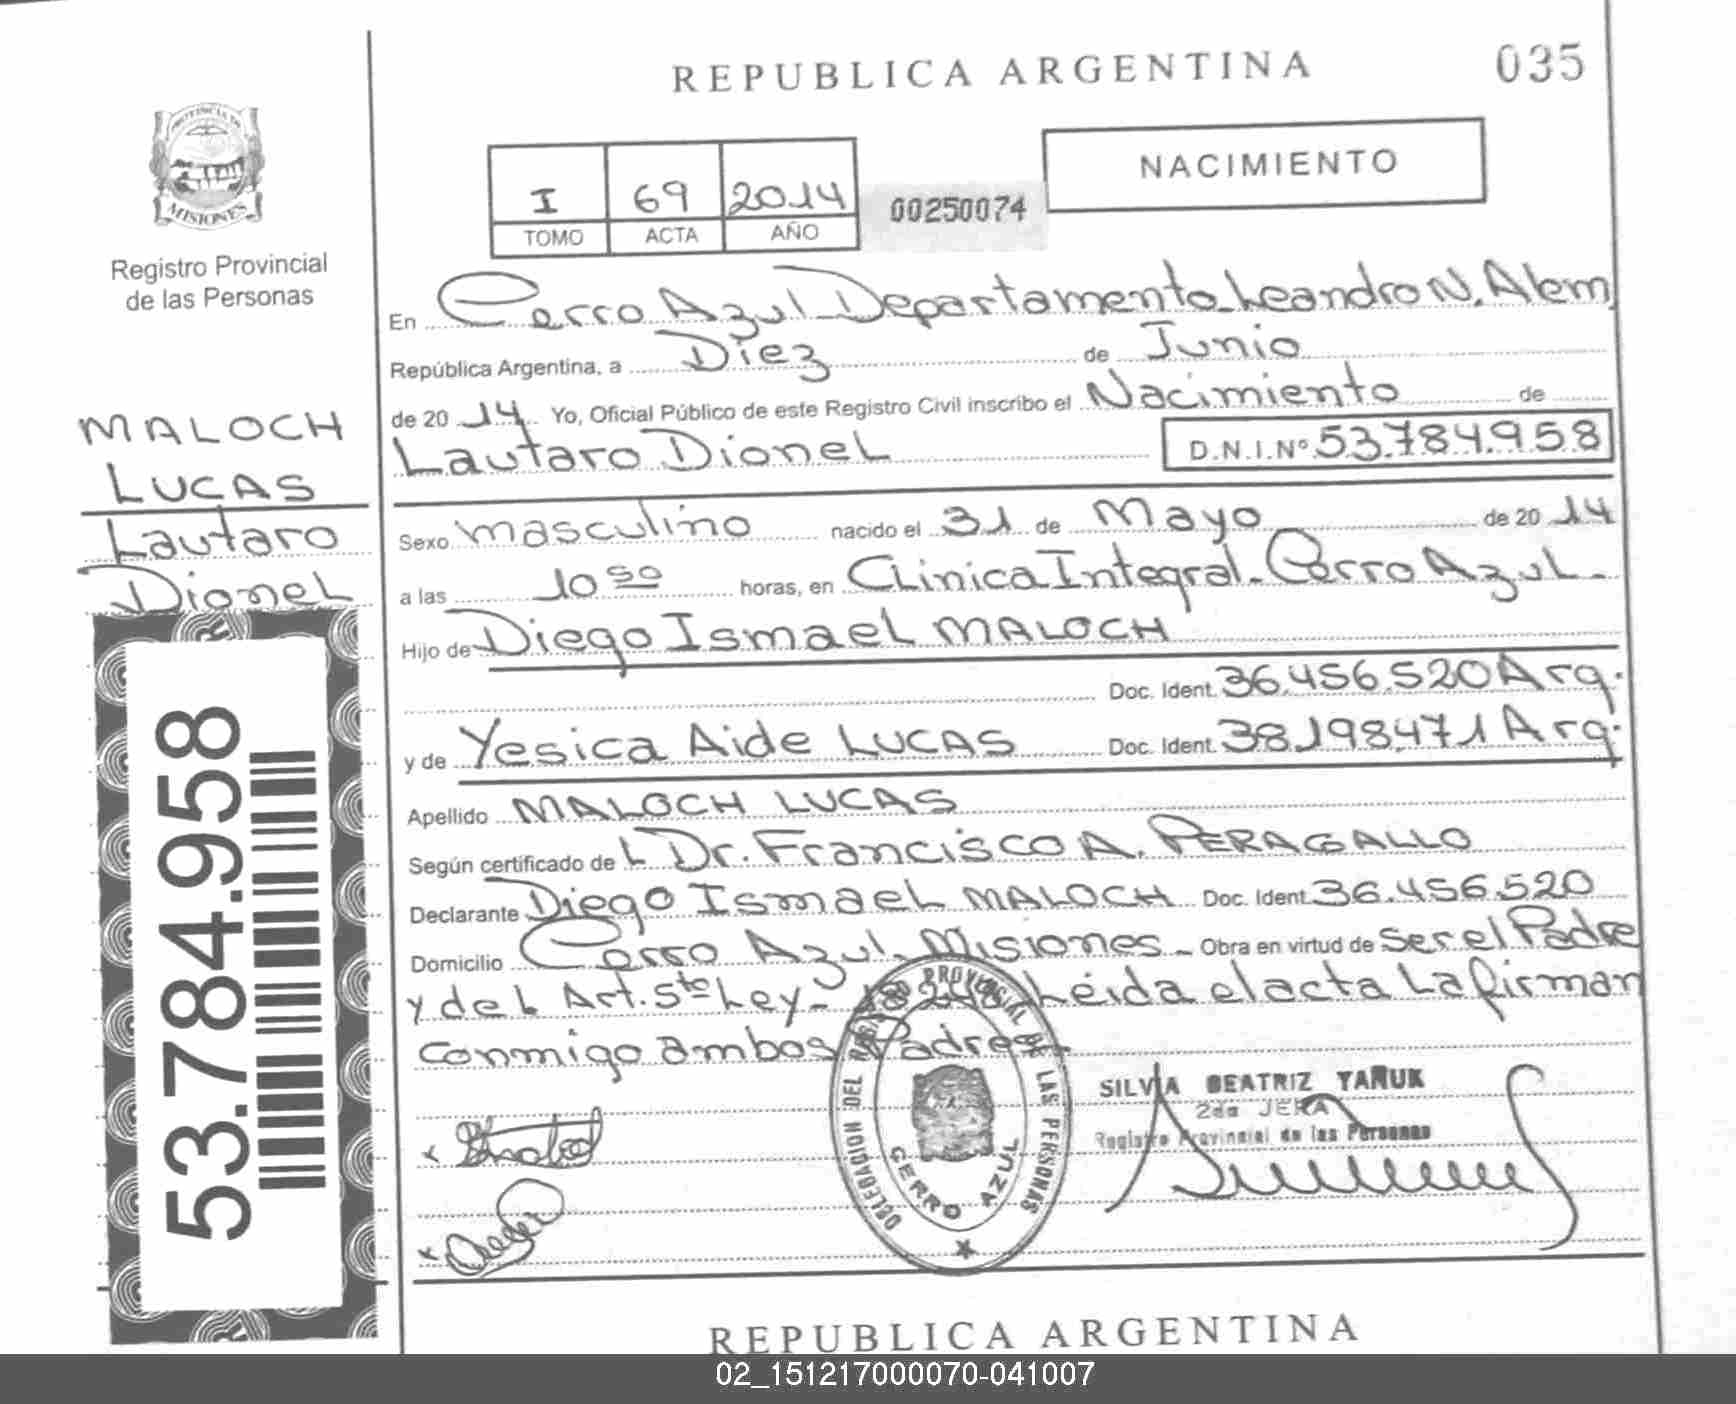 REPUBLICA ARGENTINA
035
PROVINCIA DE
MISIONES
Registro Provincial
de las Personas
I 69 2014
TOMO ACTA AÑO
00250074
NACIMIENTO
En Cerro Azul Departamento Leandro N. Alem,
República Argentina, a Diez de Junio
de 2014 Yo, Oficial Público de este Registro Civil inscribo el Nacimiento de
Lautaro Dionel D.N.I.Nº 53.784.958
MALOCH
LUCAS
Lautaro
Dionel
Sexo masculino nacido el 31 de Mayo de 2014
a las 10 50 horas, en Clinica Integral. Cerro Azul.
Hijo de Diego Ismael MALOCH
Doc. Ident. 36.456.520 Arg.
y de Yesica Aide LUCAS Doc. Ident. 38.198.471 Arg.
Apellido MALOCH LUCAS
Según certificado de L Dr. Francisco A. PERAGALLO
Declarante Diego Ismael MALOCH Doc. Ident. 36.456.520
Domicilio Cerro Azul. Misiones - Obra en virtud de ser el Padre
y del Art. 5to Ley- 18248 Leida el acta La firman
conmigo ambos Padres.
53.784.958
DELEGACION DEL REGISTRO PROVINCIAL DE LAS PERSONAS
CERRO AZUL
SILVIA BEATRIZ YAÑUK
2da JEFA
Registro Provincial de las Personas
REPUBLICA ARGENTINA
02_151217000070-041007